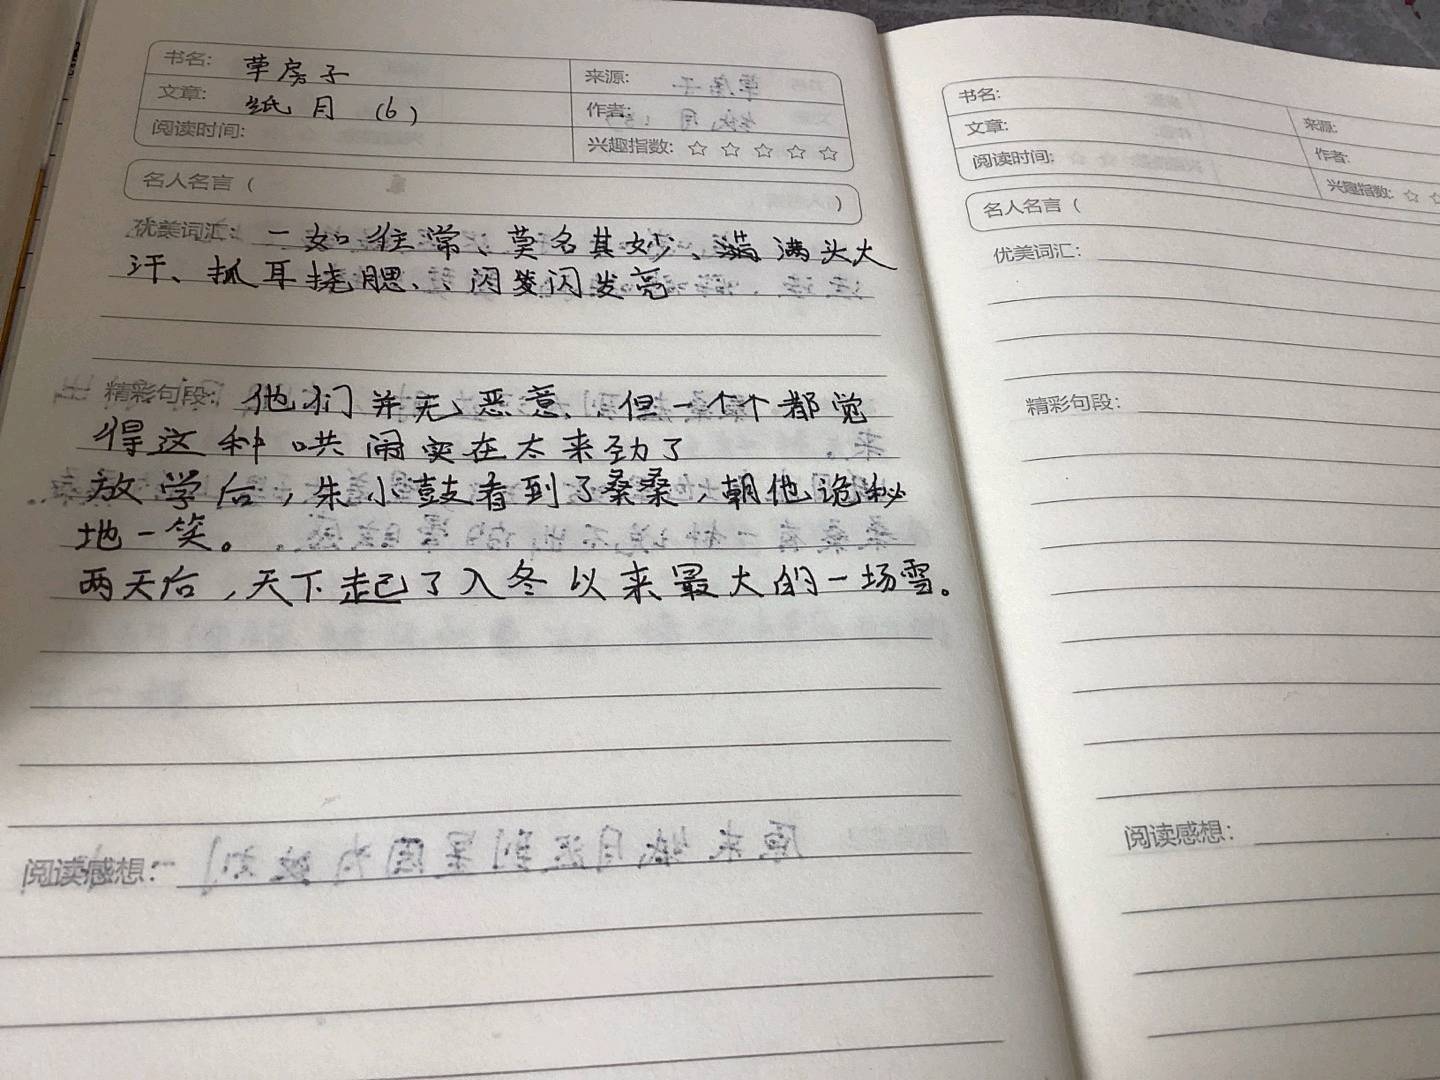 书名: 草房子
来源:
文章: 纸月 (6)
作者:
阅读时间:
兴趣指数: ☆ ☆ ☆ ☆ ☆
名人名言 ( )
优美词汇: 一如往常、莫名其妙、满头大
汗、抓耳挠腮、闪发闪发亮
精彩句段: 他们并无恶意,但一个个都觉
得这种哄闹实在太来劲了
放学后,朱小鼓看到了桑桑,朝他诡秘
地一笑。
两天后,天下起了入冬以来最大的一场雪。
阅读感想:
书名:
来源:
文章:
作者:
阅读时间:
兴趣指数: ☆ ☆
名人名言 (
优美词汇:
精彩句段:
阅读感想: